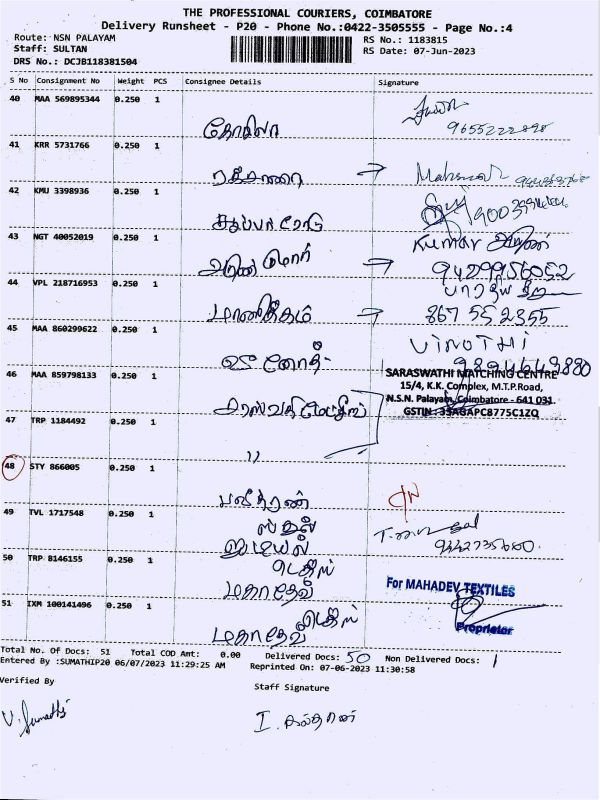 THE PROFESSIONAL COURIERS, COIMBATORE
Delivery Runsheet - P20 - Phone No.:0422-3505555 - Page No.:4
Route: NSN PALAYAM
RS No.: 1183815
Staff: SULTAN
RS Date: 07-Jun-2023
DRS No.: DCJB118381504
S No Consignment No Weight PCS Consignee Details Signature
40 MAA 569895344 0.250 1
கோகிலா
41 KRR 5731766 0.250 1
ரக்சனை →
42 KMU 3398936 0.250 1
43 NGT 40052019 0.250 1
Kumar
→ 9429956052
44 VPL 218716953 0.250 1
மாணிக்கம் → 867 552355
45 MAA 860299622 0.250 1
VINOTHI
வினோத்
9894643880
46 MAA 859798133 0.250 1
SARASWATHI MATCHING CENTRE
15/4, K.K. Complex, M.T.P.Road,
சரஸ்வதி மேட்சிங்
N.S.N. Palayam, Coimbatore - 641 031.
GSTIN : 33AGAPC8775C1ZQ
47 TRP 1184492 0.250 1
"
48 STY 866005 0.250 1
பவித்ரன்
49 TVL 1717548 0.250 1
9442735600.
50 TRP 8146155 0.250 1
மகாதேவ்
For MAHADEV TEXTILES
51 IXM 100141496 0.250 1
மகாதேவ்
Proprietor
Total No. Of Docs: 51 Total COD Amt: 0.00 Delivered Docs: 50 Non Delivered Docs: 1
Entered By :SUMATHIP20 06/07/2023 11:29:25 AM Reprinted On: 07-06-2023 11:30:58
Verified By
Staff Signature
V. Sumathi
I. சுல்தான்